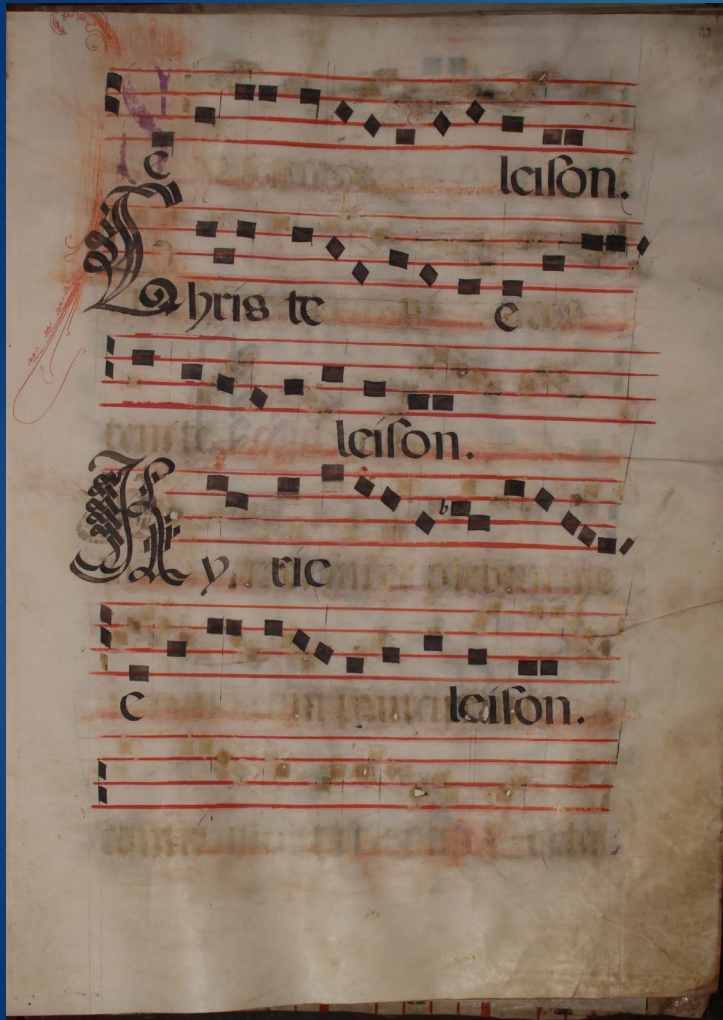 e leison.
Christe e
leison.
Kyrie
e leison.